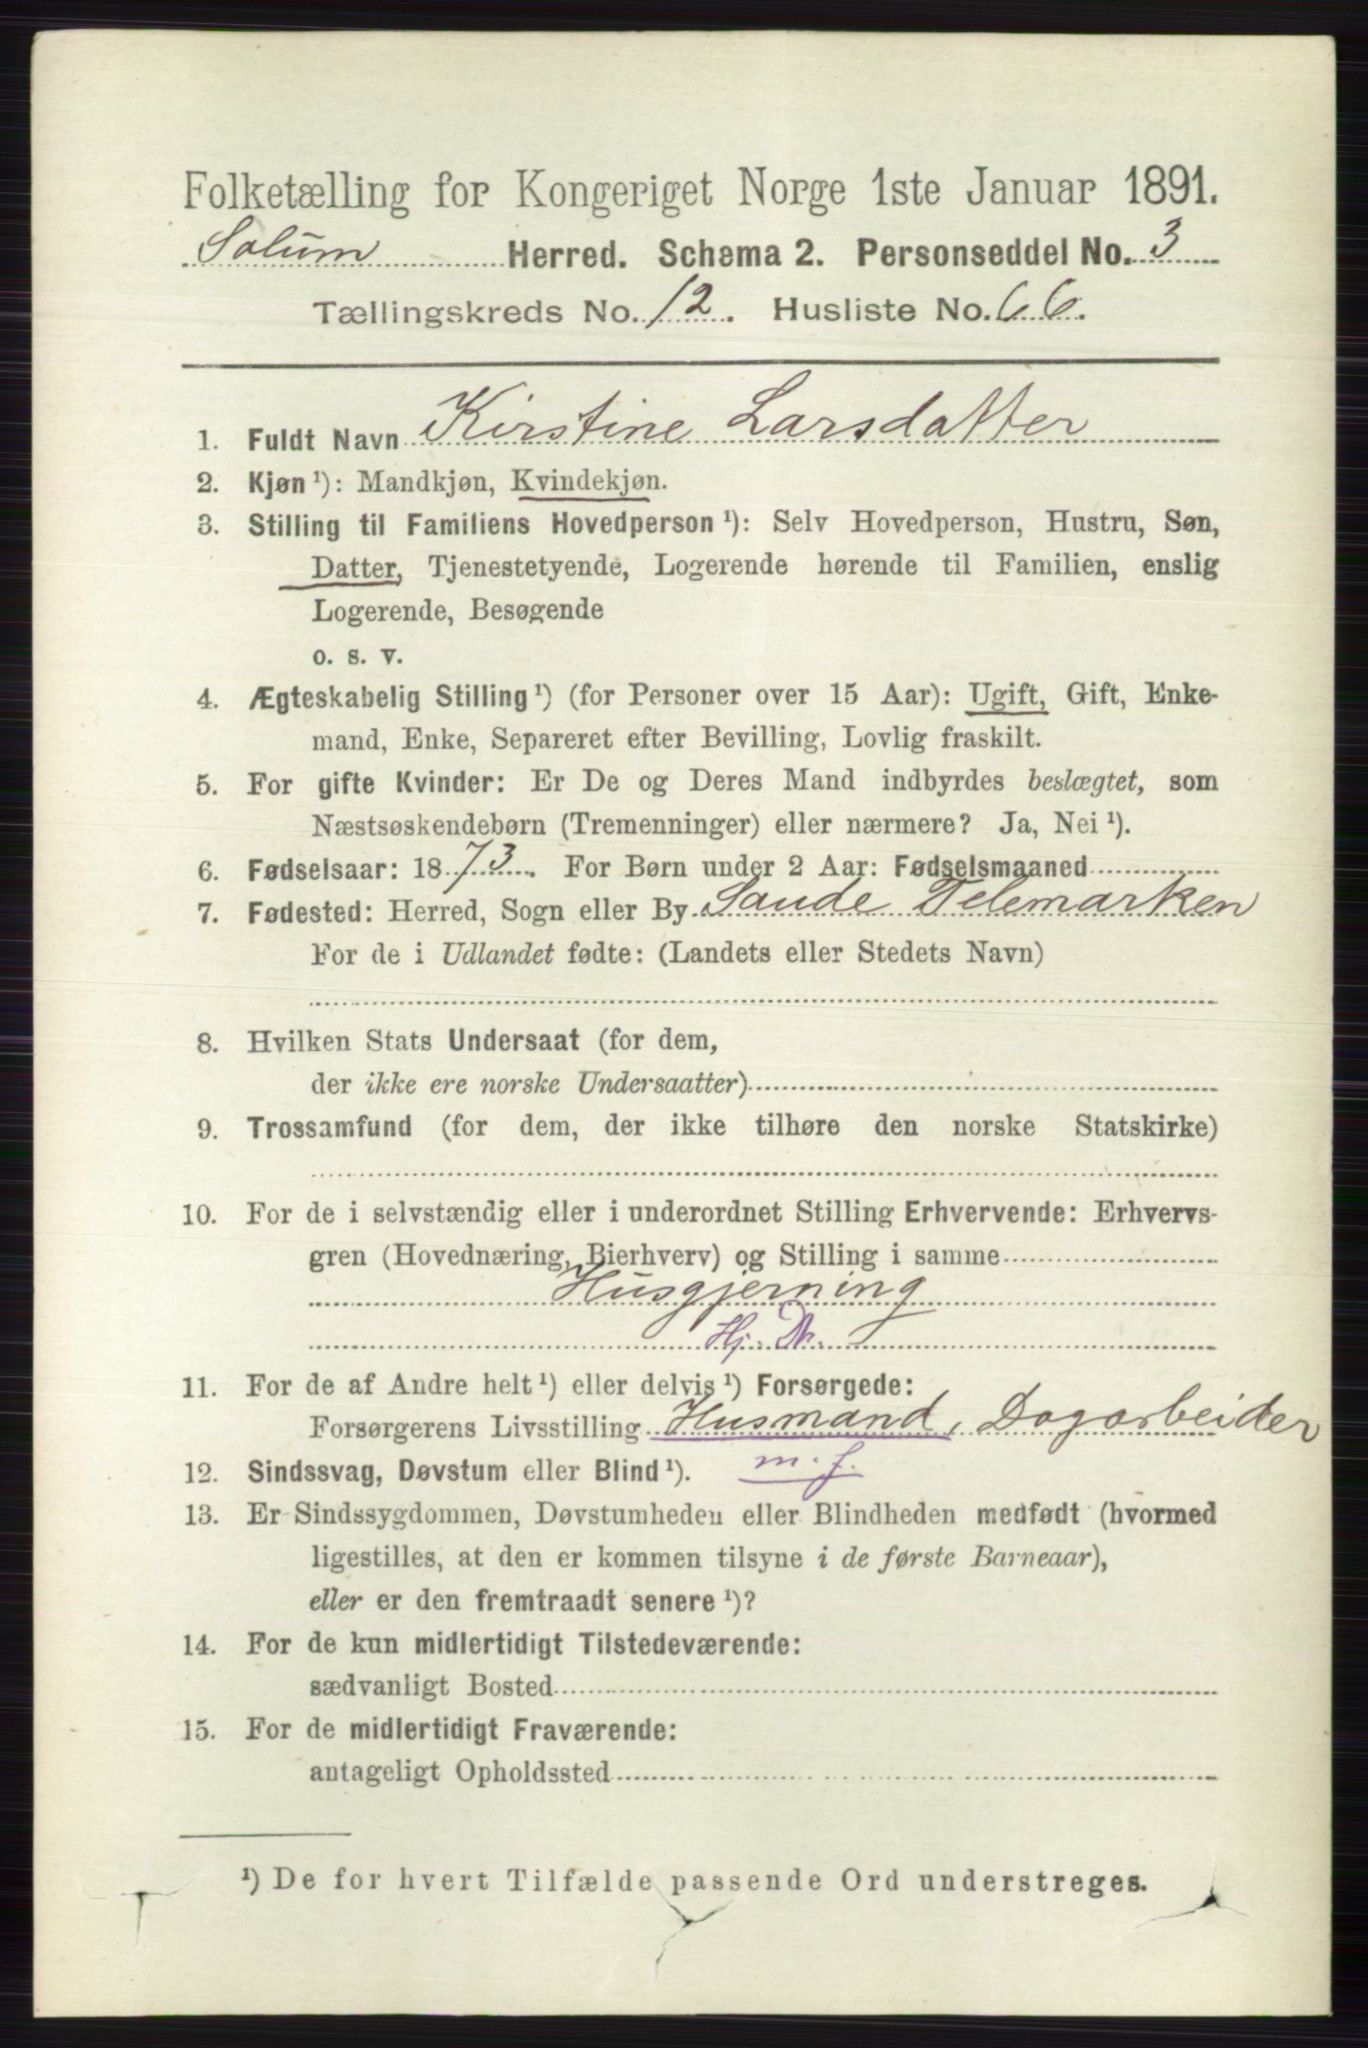 Folketælling for Kongeriget Norge 1ste Januar 1891.
Solum Herred. Schema 2. Personseddel No. 3
Tællingskreds No. 12. Husliste No. 66.
1. Fuldt Navn Kirstine Larsdatter
2. Kjøn¹): Mandkjøn, Kvindekjøn.
3. Stilling til Familiens Hovedperson¹): Selv Hovedperson, Hustru, Søn,
Datter, Tjenestetyende, Logerende hørende til Familien, enslig
Logerende, Besøgende
o. s. v.
4. Ægteskabelig Stilling¹) (for Personer over 15 Aar): Ugift, Gift, Enke-
mand, Enke, Separeret efter Bevilling, Lovlig fraskilt.
5. For gifte Kvinder: Er De og Deres Mand indbyrdes beslægtet, som
Næstsøskendebørn (Tremenninger) eller nærmere? Ja, Nei¹).
6. Fødselsaar: 1873. For Børn under 2 Aar: Fødselsmaaned
7. Fødested: Herred, Sogn eller By Saude Telemarken
For de i Udlandet fødte: (Landets eller Stedets Navn)
8. Hvilken Stats Undersaat (for dem,
der ikke ere norske Undersaatter)
9. Trossamfund (for dem, der ikke tilhøre den norske Statskirke)
10. For de i selvstændig eller i underordnet Stilling Erhvervende: Erhvervs-
gren (Hovednæring, Bierhverv) og Stilling i samme
Husgjerning
Hj. Dr.
11. For de af Andre helt¹) eller delvis¹) Forsørgede:
Forsørgerens Livsstilling Husmand, Dagarbeider
m. f.
12. Sindssvag, Døvstum eller Blind¹).
13. Er Sindssygdommen, Døvstumheden eller Blindheden medfødt (hvormed
ligestilles, at den er kommen tilsyne i de første Barneaar),
eller er den fremtraadt senere¹)?
14. For de kun midlertidigt Tilstedeværende:
sædvanligt Bosted
15. For de midlertidigt Fraværende:
antageligt Opholdssted
¹) De for hvert Tilfælde passende Ord understreges.